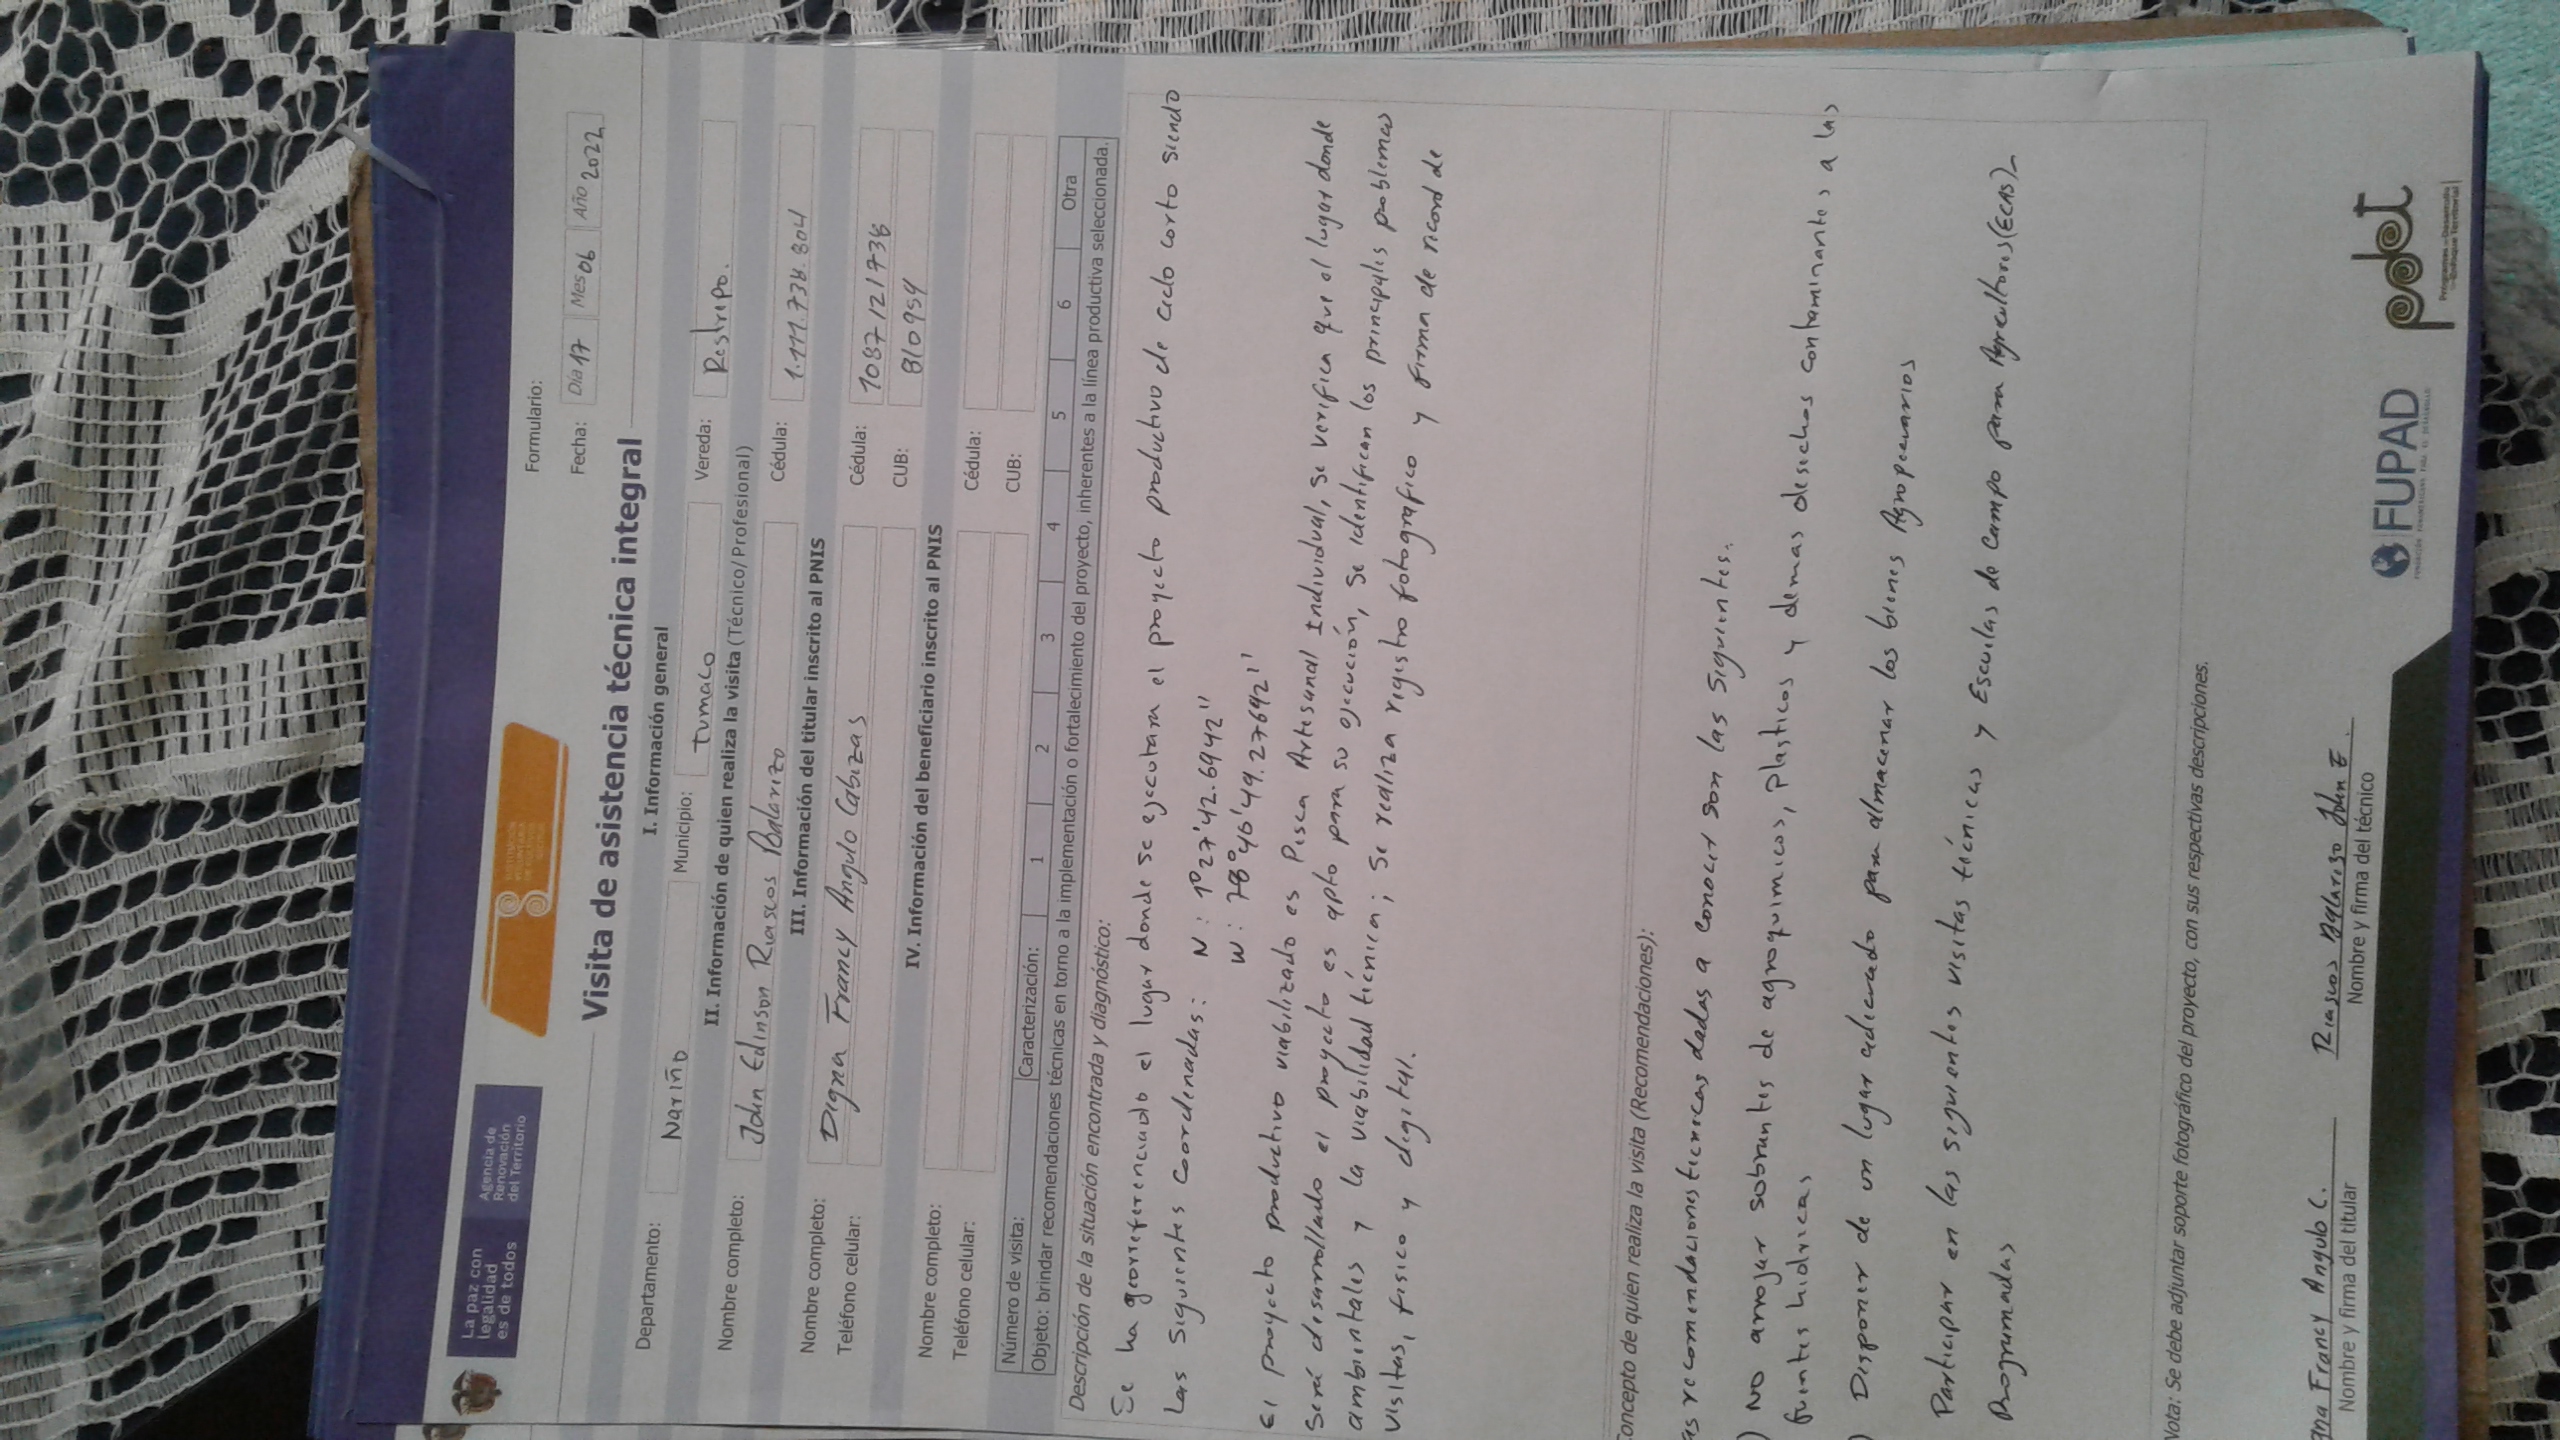 La paz con
legalidad
es de todos
Agencia de
Renovación
del Territorio
Formulario:
Fecha: Día 17 Mes 06 Año 2022
Visita de asistencia técnica integral
I. Información general
Departamento: Nariño Municipio: Tumaco Vereda: Restrepo.
II. Información de quien realiza la visita (Técnico/Profesional)
Nombre completo: John Edinson Riascos Balarizo Cédula: 1.111.738.804
III. Información del titular inscrito al PNIS
Nombre completo: Digna Francy Angulo Cabizas Cédula: 1087121738
Teléfono celular: CUB: 810954
IV. Información del beneficiario inscrito al PNIS
Nombre completo: Cédula:
Teléfono celular: CUB:
Número de visita: Caracterización: 1 2 3 4 5 6 Otra
Objeto: brindar recomendaciones técnicas en torno a la implementación o fortalecimiento del proyecto, inherentes a la línea productiva seleccionada.
Descripción de la situación encontrada y diagnóstico:
Se ha georreferenciado el lugar donde se ejecutara el proyecto productivo de ciclo corto siendo
Las siguientes coordenadas: N: 1°27'42.6942''
W: 78°46'49.27692''
El proyecto productivo viabilizado es Pesca Artesanal Individual, se verifica que el lugar donde
Será desarrollado el proyecto es apto para su ejecución, se identifican los principales problemas
ambientales y la viabilidad técnica; se realiza registro fotografico y firma de record de
visitas, fisico y digital.
Concepto de quien realiza la visita (Recomendaciones):
as recomendaciones tecnicas dadas a conocer son las siguientes:
) No arrojar sobrantes de agroquimicos, plasticos y demas desechos contaminantes a las
fuentes hidricas
) Disponer de un lugar adecuado para almacenar los bienes Agropecuarios
Participar en las siguientes visitas técnicas y Escuelas de Campo para Agricultores (ECAS)
Programadas
Nota: Se debe adjuntar soporte fotográfico del proyecto, con sus respectivas descripciones.
gna Francy Angulo C.
Nombre y firma del titular
Riascos Balarizo John E.
Nombre y firma del técnico
FUPAD
pdet
Programas de Desarrollo
con Enfoque Territorial